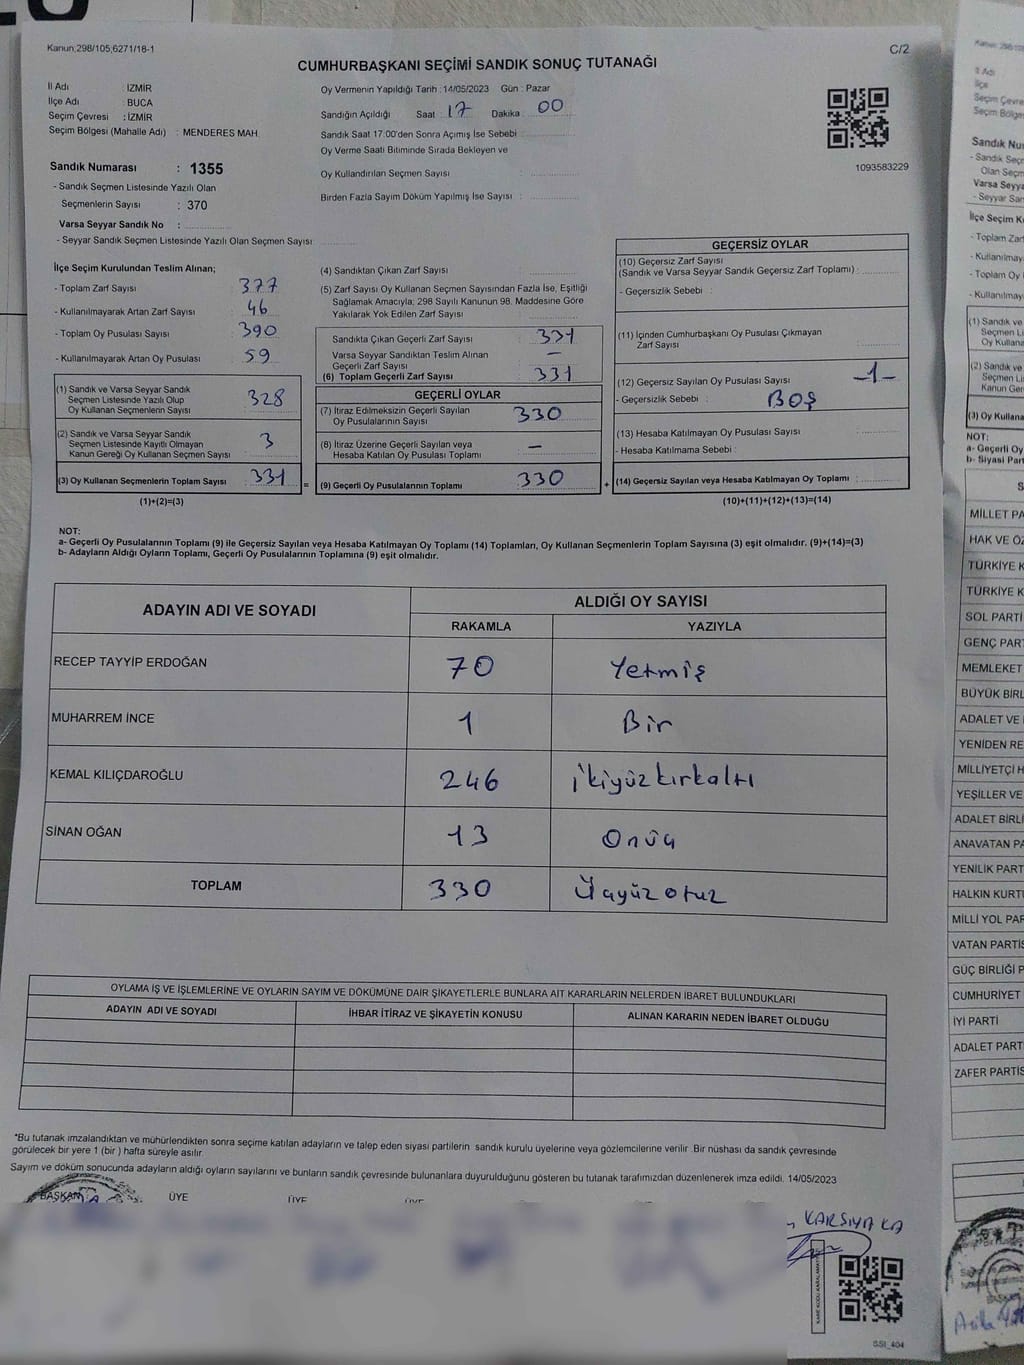 Kanun;298/105,6271/18-1
C/2
CUMHURBAŞKANI SEÇİMİ SANDIK SONUÇ TUTANAĞI
İl Adı : İZMİR
İlçe Adı : BUCA
Seçim Çevresi : İZMİR
Seçim Bölgesi (Mahalle Adı) : MENDERES MAH.
Sandık Numarası : 1355
- Sandık Seçmen Listesinde Yazılı Olan
Seçmenlerin Sayısı : 370
Varsa Seyyar Sandık No :
- Seyyar Sandık Seçmen Listesinde Yazılı Olan Seçmen Sayısı
Oy Vermenin Yapıldığı Tarih : 14/05/2023 Gün : Pazar
Sandığın Açıldığı Saat 17 Dakika 00
Sandık Saat 17:00'den Sonra Açımış İse Sebebi
Oy Verme Saati Bitiminde Sırada Bekleyen ve
Oy Kullandırılan Seçmen Sayısı :
Birden Fazla Sayım Döküm Yapılmış İse Sayısı :
1093583229
İlçe Seçim Kurulundan Teslim Alınan;
- Toplam Zarf Sayısı : 377
- Kullanılmayarak Artan Zarf Sayısı : 46
- Toplam Oy Pusulası Sayısı : 390
- Kullanılmayarak Artan Oy Pusulası : 59
(1) Sandık ve Varsa Seyyar Sandık
Seçmen Listesinde Yazılı Olup
Oy Kullanan Seçmenlerin Sayısı : 328
(2) Sandık ve Varsa Seyyar Sandık
Seçmen Listesinde Kayıtlı Olmayan
Kanun Gereği Oy Kullanan Seçmen Sayısı : 3
(3) Oy Kullanan Seçmenlerin Toplam Sayısı : 331
(1)+(2)=(3)
(4) Sandıktan Çıkan Zarf Sayısı :
(5) Zarf Sayısı Oy Kullanan Seçmen Sayısından Fazla İse, Eşitliği
Sağlamak Amacıyla; 298 Sayılı Kanunun 98. Maddesine Göre
Yakılarak Yok Edilen Zarf Sayısı :
Sandıkta Çıkan Geçerli Zarf Sayısı : 331
Varsa Seyyar Sandıktan Teslim Alınan
Geçerli Zarf Sayısı : –
(6) Toplam Geçerli Zarf Sayısı : 331
GEÇERLİ OYLAR
(7) İtiraz Edilmeksizin Geçerli Sayılan
Oy Pusulalarının Sayısı : 330
(8) İtiraz Üzerine Geçerli Sayılan veya
Hesaba Katılan Oy Pusulası Toplamı : –
= (9) Geçerli Oy Pusulalarının Toplamı : 330
GEÇERSİZ OYLAR
(10) Geçersiz Zarf Sayısı
(Sandık ve Varsa Seyyar Sandık Geçersiz Zarf Toplamı) :
- Geçersizlik Sebebi :
(11) İçinden Cumhurbaşkanı Oy Pusulası Çıkmayan
Zarf Sayısı :
(12) Geçersiz Sayılan Oy Pusulası Sayısı : -1-
- Geçersizlik Sebebi : BOŞ
(13) Hesaba Katılmayan Oy Pusulası Sayısı :
- Hesaba Katılmama Sebebi :
+ (14) Geçersiz Sayılan veya Hesaba Katılmayan Oy Toplamı :
(10)+(11)+(12)+(13)=(14)
NOT:
a- Geçerli Oy Pusulalarının Toplamı (9) ile Geçersiz Sayılan veya Hesaba Katılmayan Oy Toplamı (14) Toplamları, Oy Kullanan Seçmenlerin Toplam Sayısına (3) eşit olmalıdır. (9)+(14)=(3)
b- Adayların Aldığı Oyların Toplamı, Geçerli Oy Pusulalarının Toplamına (9) eşit olmalıdır.
ADAYIN ADI VE SOYADI
ALDIĞI OY SAYISI
RAKAMLA YAZIYLA
RECEP TAYYİP ERDOĞAN 70 Yetmiş
MUHARREM İNCE 1 Bir
KEMAL KILIÇDAROĞLU 246 ikiyüzkırkaltı
SİNAN OĞAN 13 Onüç
TOPLAM 330 Üçyüzotuz
OYLAMA İŞ VE İŞLEMLERİNE VE OYLARIN SAYIM VE DÖKÜMÜNE DAİR ŞİKAYETLERLE BUNLARA AİT KARARLARIN NELERDEN İBARET BULUNDUKLARI
ADAYIN ADI VE SOYADI İHBAR İTİRAZ VE ŞİKAYETİN KONUSU ALINAN KARARIN NEDEN İBARET OLDUĞU
*Bu tutanak imzalandıktan ve mühürlendikten sonra seçime katılan adayların ve talep eden siyasi partilerin sandık kurulu üyelerine veya gözlemcilerine verilir. Bir nüshası da sandık çevresinde
görülecek bir yere 1 (bir) hafta süreyle asılır.
Sayım ve döküm sonucunda adayların aldığı oyların sayılarını ve bunların sandık çevresinde bulunanlara duyurulduğunu gösteren bu tutanak tarafımızdan düzenlenerek imza edildi. 14/05/2023
BAŞKAN ÜYE ÜYE ÜYE
KARŞIYAKA
SSI_404
İl Adı
İlçe
Seçim Çevres
Seçim Bölges
Sandık Nu
- Sandık Seçm
Olan Seçm
Varsa Seyya
- Seyyar San
İlçe Seçim K
- Toplam Zarf
- Kullanılmay
- Toplam Oy
- Kullanılmay
(1) Sandık ve
Seçmen Li
Oy Kullana
(2) Sandık ve
Seçmen Lis
Kanun Ger
(3) Oy Kullana
NOT:
a- Geçerli Oy
b- Siyasi Part
MİLLET PA
HAK VE ÖZ
TÜRKİYE K
TÜRKİYE K
SOL PARTİ
GENÇ PAR
MEMLEKET
BÜYÜK BİRL
ADALET VE
YENİDEN RE
MİLLİYETÇİ H
YEŞİLLER VE
ADALET BİRLİ
ANAVATAN PA
YENİLİK PART
HALKIN KURTU
MİLLİ YOL PAR
VATAN PARTİS
GÜÇ BİRLİĞİ P
CUMHURİYET
İYİ PARTİ
ADALET PART
ZAFER PARTİS